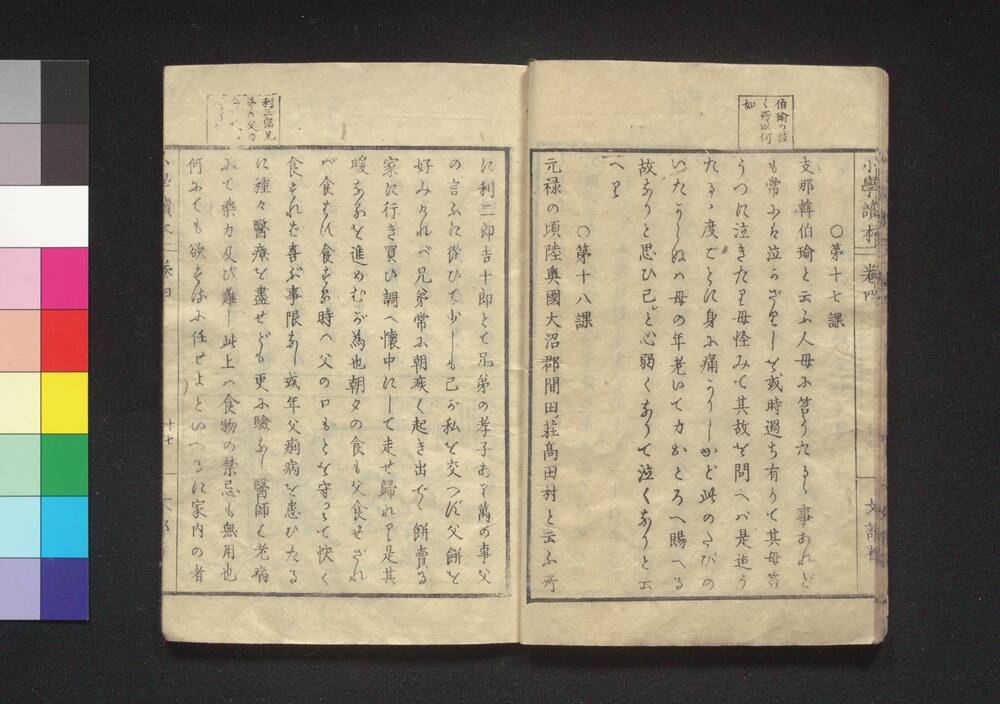 小學讀本 卷四 文部省
伯瑜の泣
く所以何
如
○第十七課
支那韓伯瑜と云ふ人母に笞うたるゝ事あれど
も常には泣かざりしを或時過ち有りて其母笞
うつに泣きたり母怪みて其故を問へバ是迄う
たるゝ度ごとに身に痛かりしかど此のたびの
いたからぬハ母の年老いて力おとろへ賜へる
故なりと思ひ已と心弱くなりて泣くなりと云
へり
○第十八課
元禄の頃陸奥國大沼郡間田荘髙田村と云ふ所
利二郎兄
弟の父の
に利二郎吉十郎とて兄弟の孝子あり萬の事父
の言ふに從ひて少しも己が私を交へず父餅を
好みけれバ兄弟常に朝疾く起き出でゝ餅賣る
家に行き買ひ調へ懐中にして走せ歸れり是其
暖なるを進めむが為也朝夕の食も父食せざれ
バ食せず食する時ハ父の口もとを守りて快く
食すれバ喜ぶ事限なし或年父痢病を患ひたる
に種々醫療を盡せども更に驗なし醫師も老病
にて藥力及び難し此上ハ食物の禁忌も無用也
何にても欲するに任せよといへるに家内の者
小學讀本 卷四 十七 文部